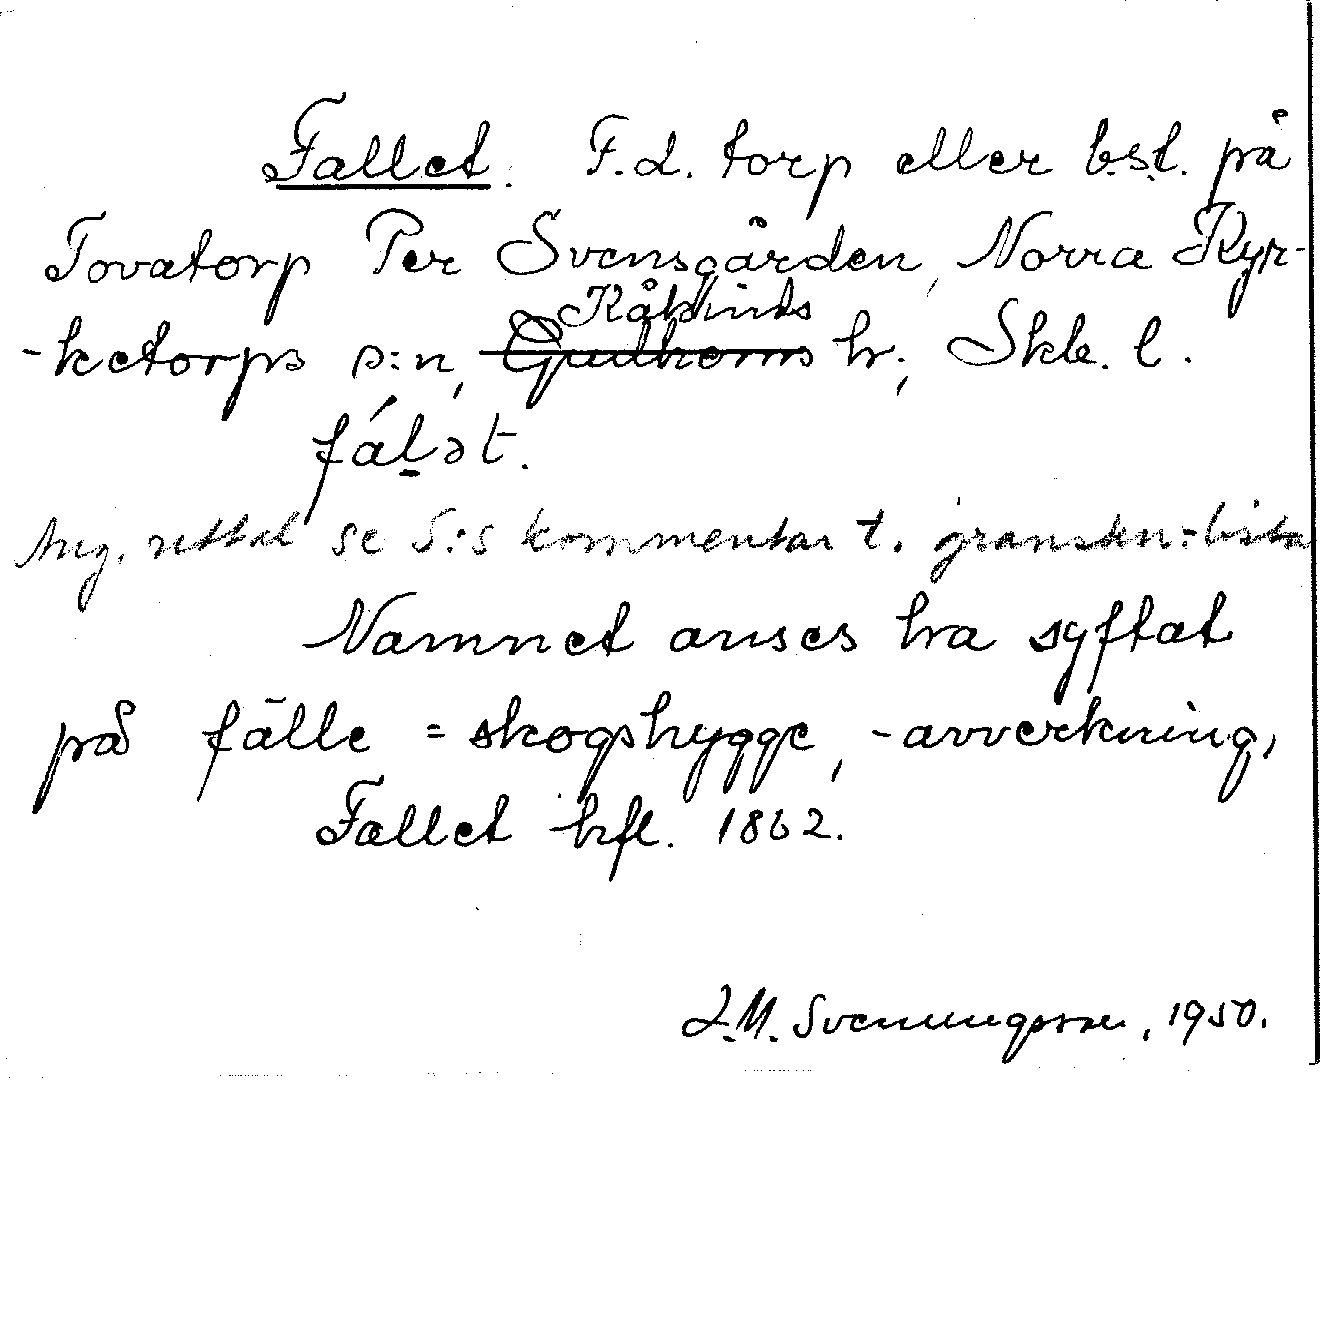 Fallet. F.d. torp eller b.st. på
Tovatorp Per Svensgården, Norra Kyr-
Kåkinds
-ketorps s:n, Gudhems hr; Skb. l.
fálət.
Ang. uttal se S:s kommentar t. granskn:lista
Namnet anses ha syftat
på fälle = skogshygge, -avverkning,
Fallet hfl. 1862.
J.M. Svenningsson, 1950.